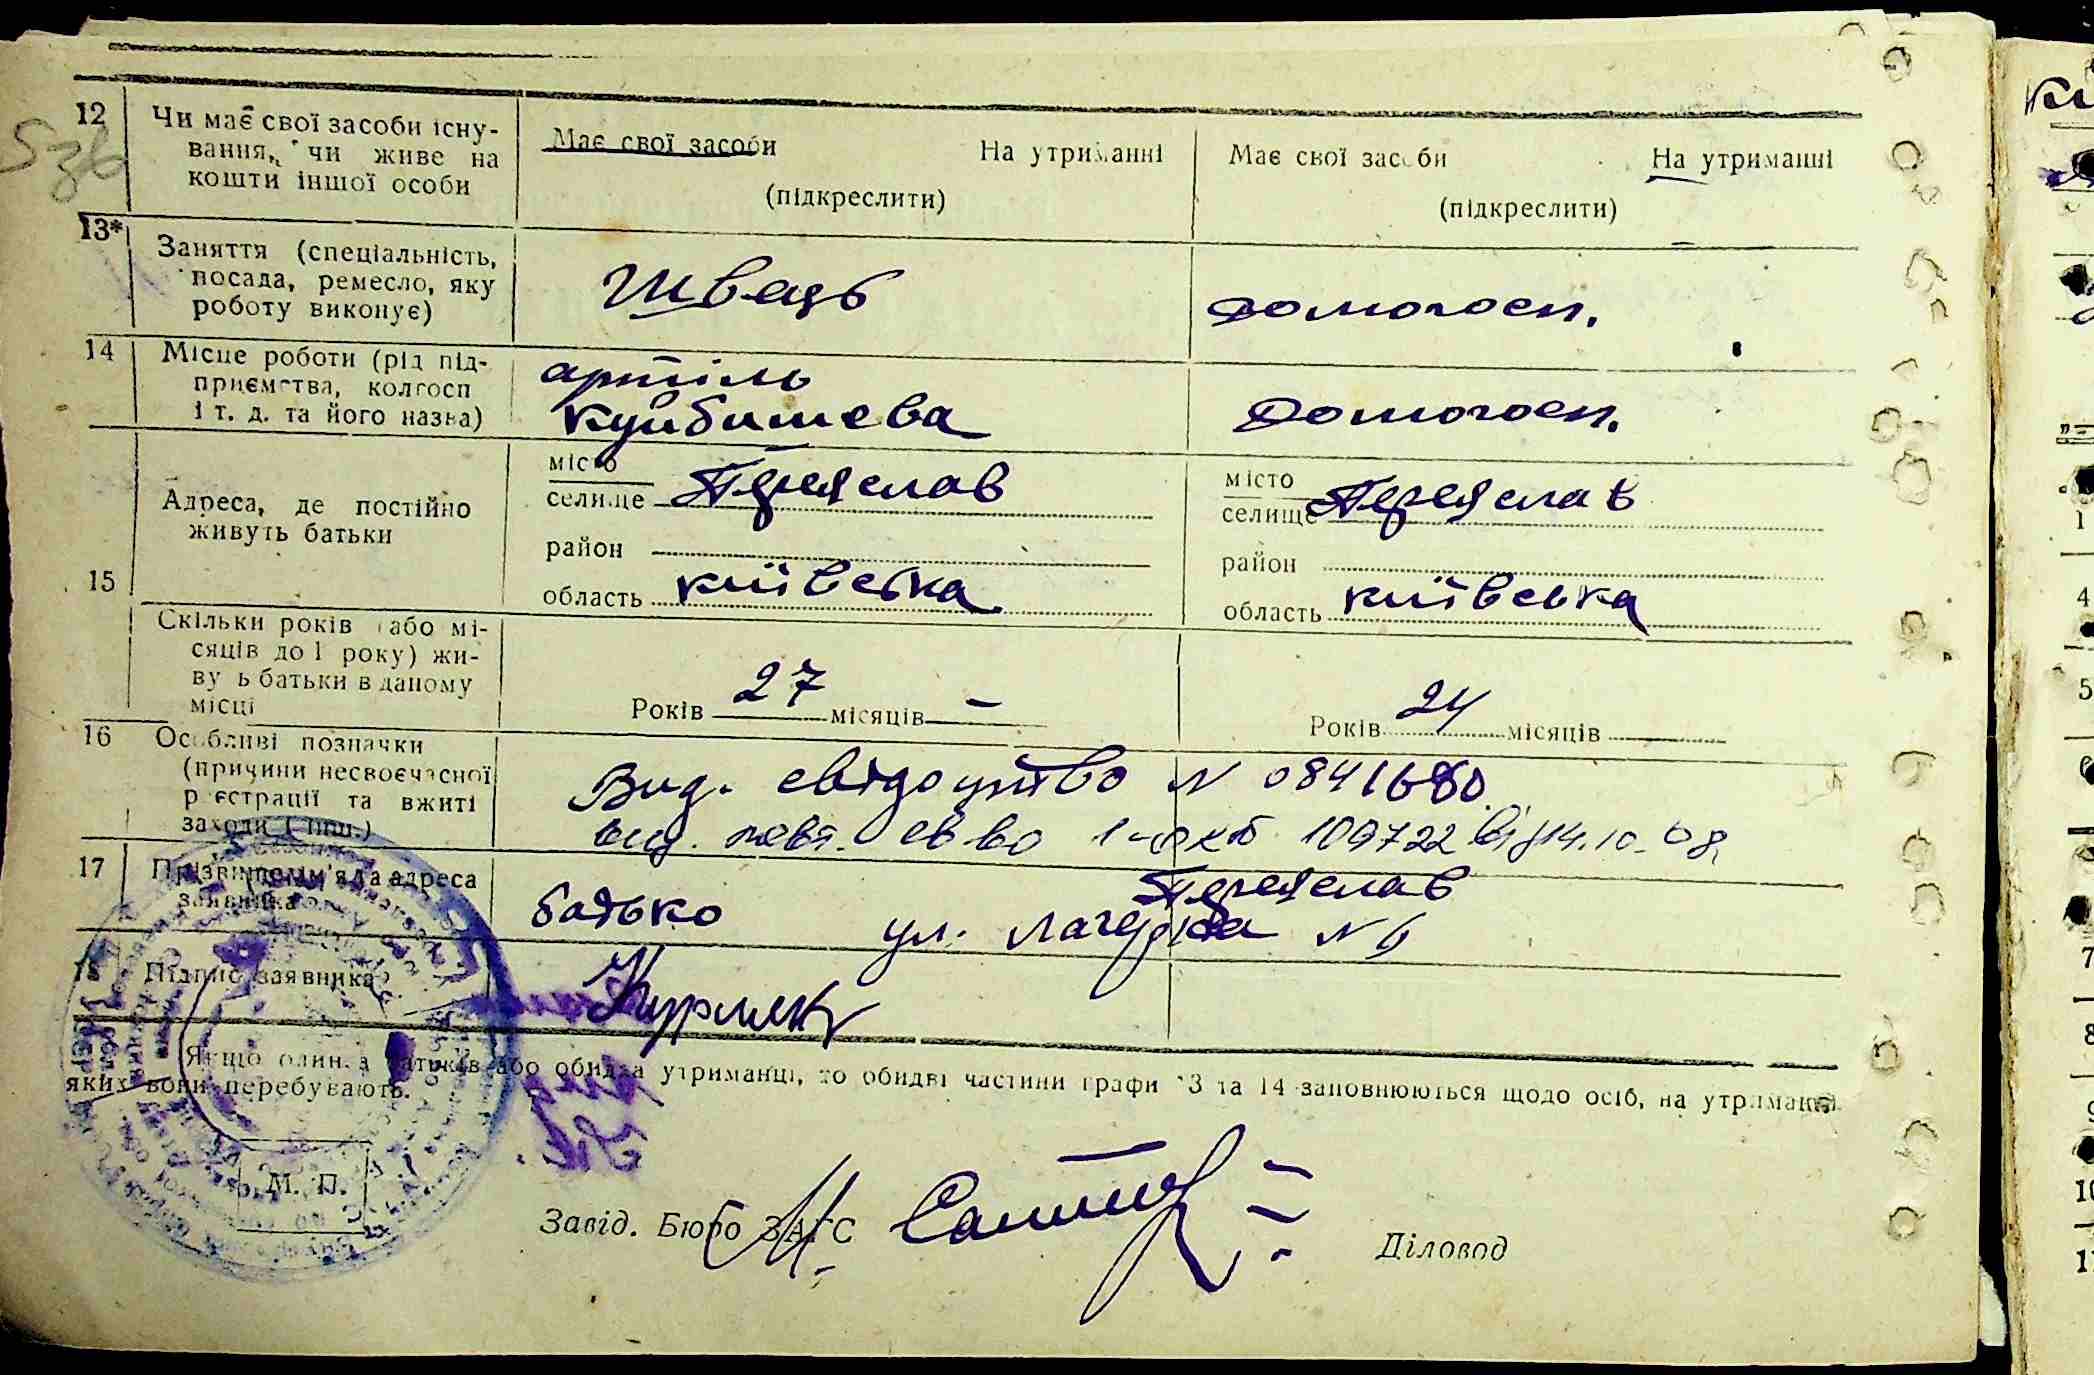 12 Чи має свої засоби існу-
вання, чи живе на
кошти іншої особи
Має свої засоби На утриманні
(підкреслити)
Має свої засоби На утриманні
(підкреслити)
13* Заняття (спеціальність,
посада, ремесло, яку
роботу виконує)
Швець
домогосп.
14 Місце роботи (рід під-
приємства, колгосп
і т. д. та його назва)
артіль
Куйбишева
Домогосп.
15 Адреса, де постійно
живуть батьки
місто
селище Переяслав
район
область київська
місто
селище Переяслав
район
область київська
Скільки років (або мі-
сяців до 1 року) жи-
вуть батьки в даному
місці
Років 27 місяців —
Років 24 місяців
16 Особливі позначки
(причини несвоєчасної
реєстрації та вжиті
заходи і інш.)
Вид. свідоцтво N 0841680
вид. повт. св во 109722 від 14.10.
17 Прізвище, ім'я та адреса
заявника
батько Переяслав
ул. N 6
18 Підпис заявника
Якщо один з батьків або обидва утриманці, то обидві частини графи 13 та 14 заповнюються щодо осіб, на утриманні
яких вони перебувають.
М. П.
Завід. Бюро ЗАГС
Діловод